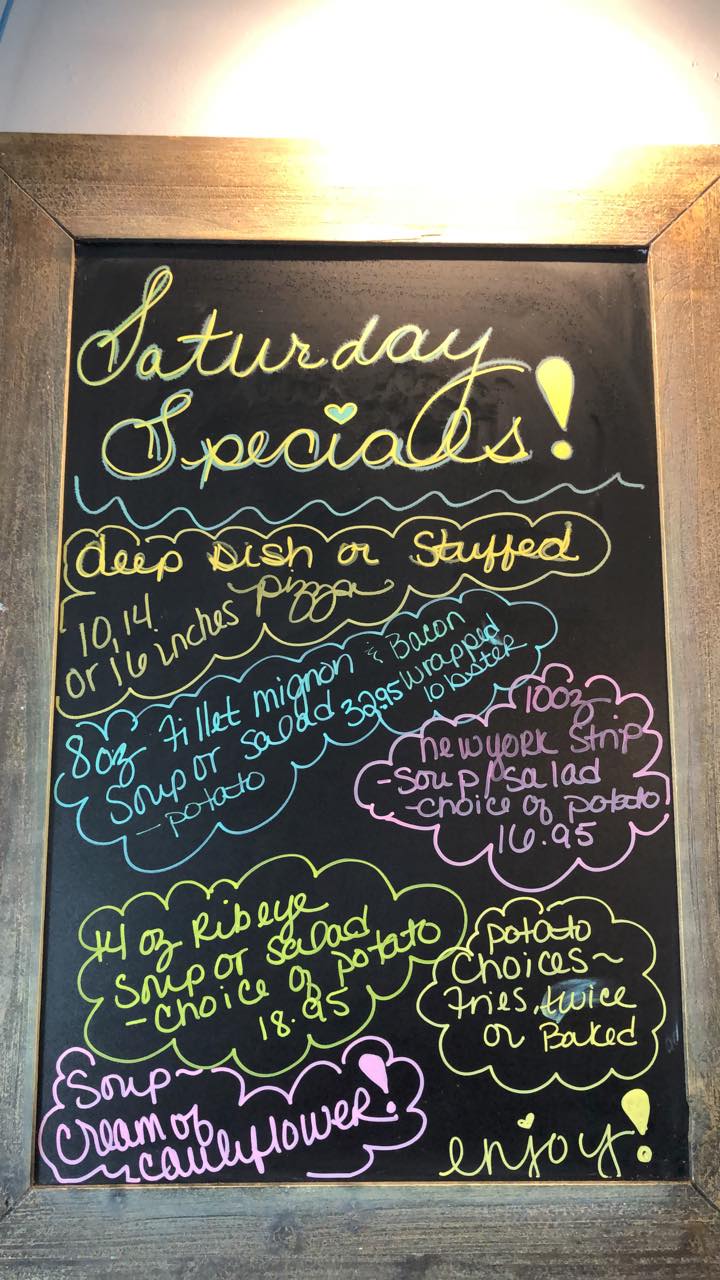 Saturday
Specials!
deep Dish or Stuffed
pizza
10, 14
or 16 inches
8oz Fillet mignon & Bacon
wrapped
lobster
Soup or salad 32.95
- potato
10oz
newyork Strip
- soup/salad
- choice of potato
16.95
14 oz Ribeye
Soup or salad
- choice of potato
18.95
potato
Choices~
Fries, twice
or Baked
Soup~
Cream of
cauliflower!
enjoy!